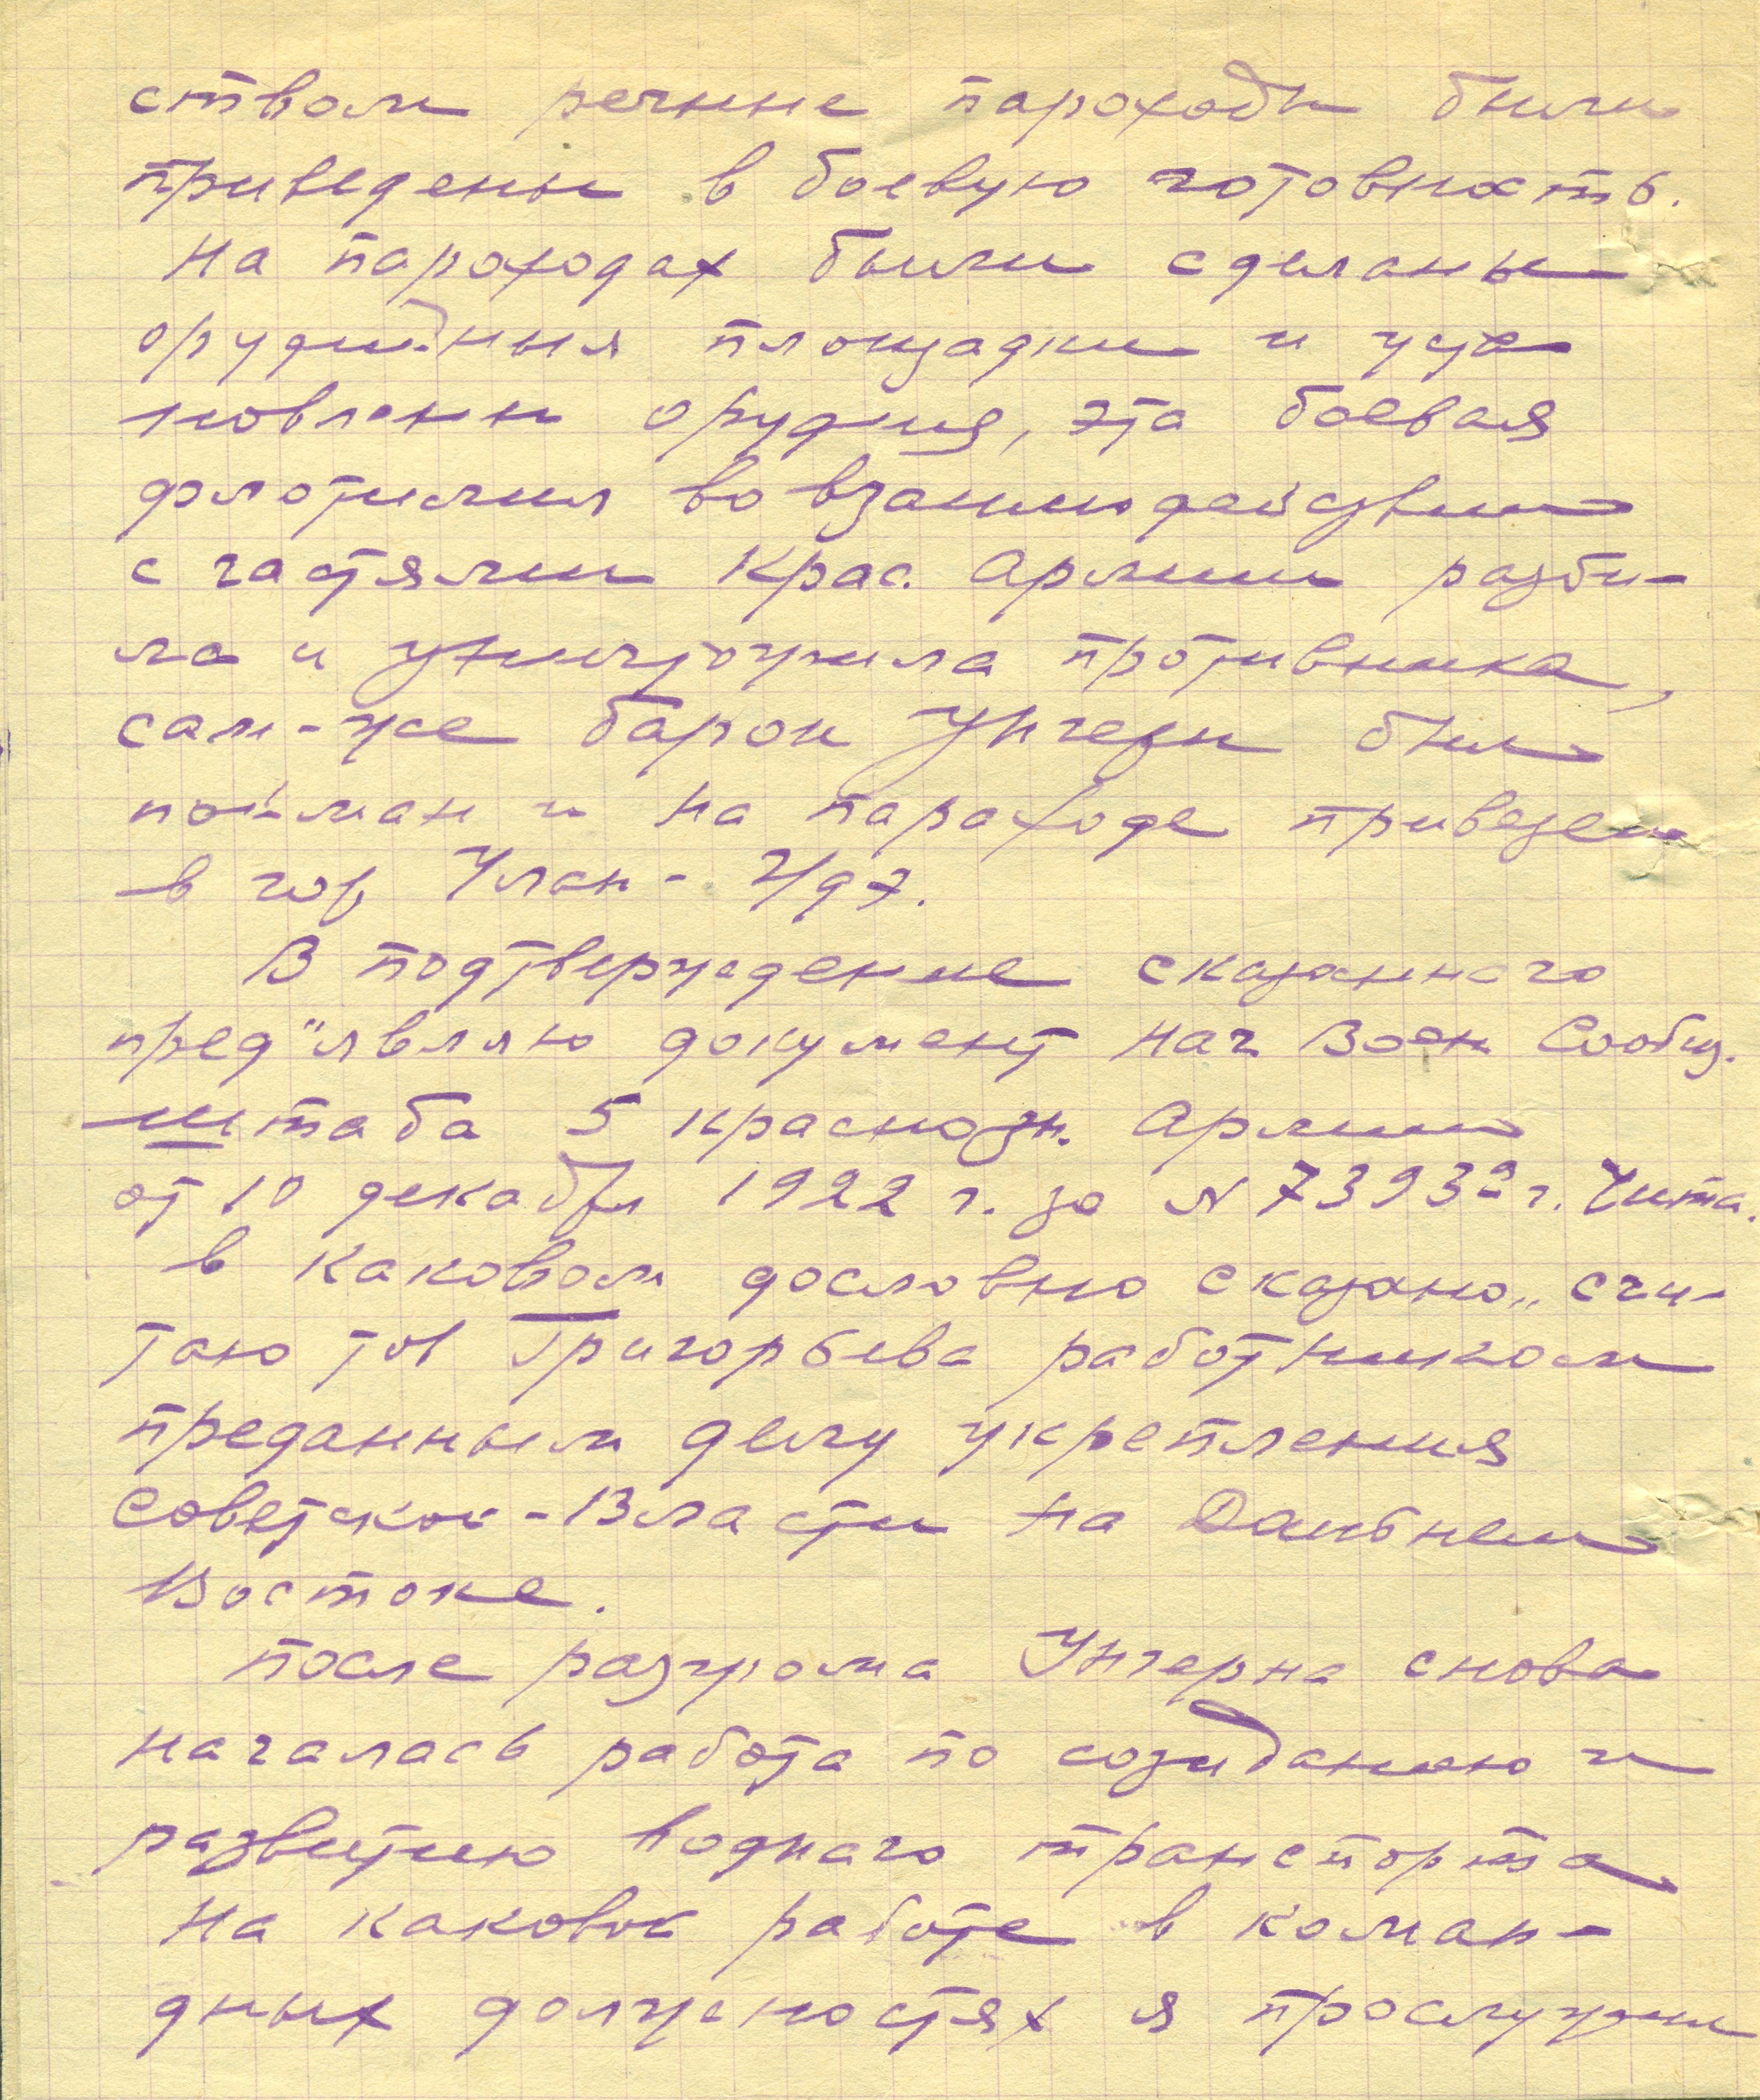 ством речные пароходы были
приведены в боевую готовность.
На пароходах были сделаны
орудийныя площадки и уста
новлены орудия, эта боевая
флотилия во взаимодействии
с частями Крас. Армии разби-
ла и уничтожила противника,
сам-же барон Унгерн был
пойман и на пароходе привезен
в гор Улан-Удэ.
В подтверждение сказанного
пред"являю документ Нач Воен Сообщ.
штаба 5 краснозн. Армии
от 10 декабря 1922 г. за N 7393 г. Чита.
в каковом дословно сказано „счи-
таю тов Григорьева работником
преданным делу укрепления
Советской-Власти на Дальнем
Востоке.
После разгрома Унгерна снова
началась работа по созиданию и
развитию водного транспорта
На каковой работе в коман-
дных должностях я прослужил